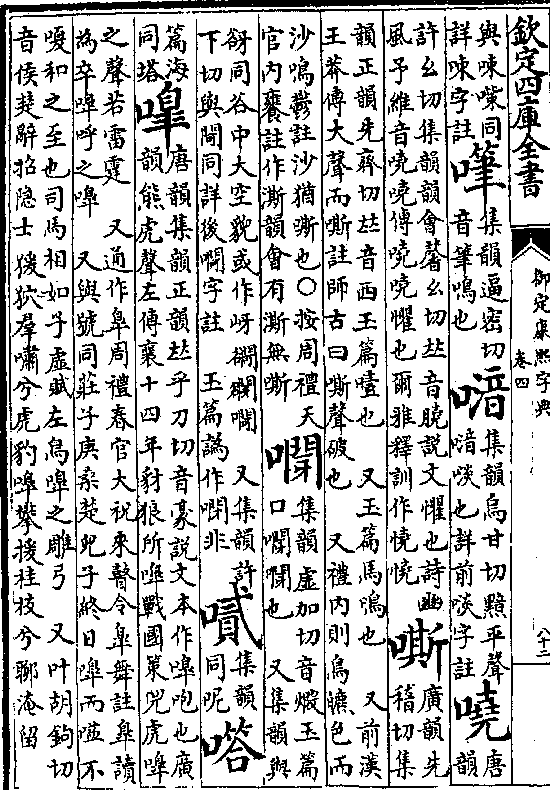 欽定四庫全書
御定康熙字典
卷四
八十二
與㖦同
詳㖦字註
集韻逼密切
音筆鳴也
喑
集韻烏甘切黤平聲
喑啖也詳前啖字註
嘵
唐韻
許幺切集韻韻會馨幺切𠀤音膮説文懼也詩豳
風予維音嘵嘵傳嘵嘵懼也爾雅釋訓作憢憢
嘶
廣韻先
稽切集
韻正韻先齊切𠀤音西玉篇噎也 又玉篇馬鳴也 又前漢
王莽傳大聲而嘶註師古曰嘶聲破也 又禮内則鳥皫色而
沙鳴鬱註沙猶嘶也○按周禮天
官内饔註作澌韻會有澌無嘶
集韻虛加切音煆玉篇
口也 又集韻與
谺同谷中大空貌或作岈 又集韻許
下切與閜同詳後字註 玉篇譌作非
集韻
同呢
嗒
篇海
同塔
嘷
唐韻集韻正韻𠀤乎刀切音豪説文本作嘷咆也廣
韻熊虎聲左傳襄十四年豺狼所嘷戰國策兕虎嘷
之聲若雷霆 又通作臯周禮春官大祝來瞽令臯舞註臯讀
為卒嘷呼之嘷 又與號同莊子庚桑楚兒子終日嘷而嗌不
嗄和之至也司馬相如子虛賦左烏嘷之雕弓 又叶胡鉤切
音侯楚辭招隠士猨狖羣嘯兮虎豹嘷攀援桂枝兮聊淹留